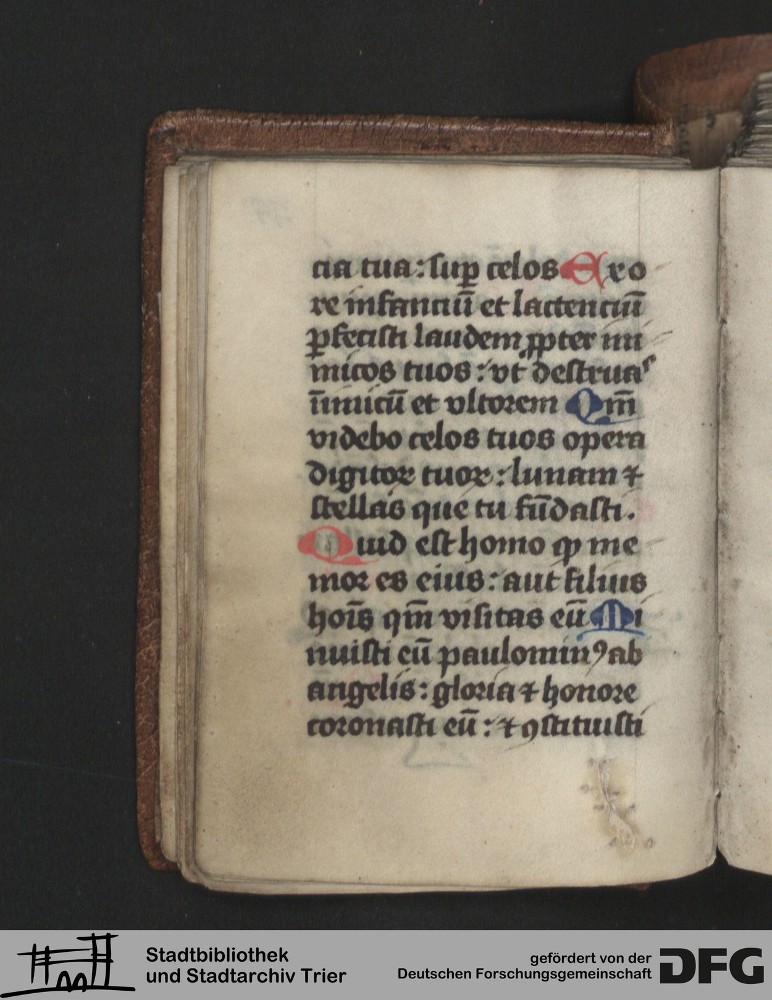 cia tua : sup̱ celos Ex o
re infanciū et lactenciū
ꝑfecisti laudem ꝓpter ini
micos tuos : vt destruas
īimicū et vltorem Qm̄
videbo celos tuos opera
digitoꝝ tuoꝝ : lunam ⁊
stellas que tu fūdasti .
Quid est homo ꝙ me
mor es eius : aut filius
hoīs qm̄ visitas eū Mi
nuisti eū paulominꝰ ab
angelis : gloria ⁊ honore
coronasti eū : ⁊ ꝯstituisti
Stadtbibliothek
und Stadtarchiv Trier
gefördert von der
Deutschen Forschungsgemeinschaft
DFG